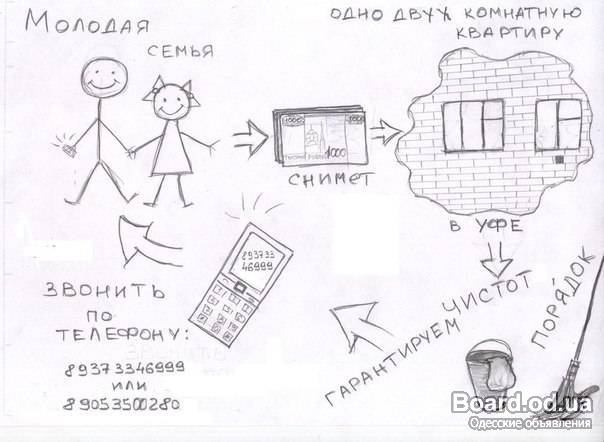 МОЛОДАЯ
СЕМЬЯ
1000
1000
1000
СНИМЕТ
ОДНО ДВУХ КОМНАТНУЮ
КВАРТИРУ
В УФЕ
ГАРАНТИРУЕМ
ЧИСТОТ
ПОРЯДОК
893733
46999
ЗВОНИТЬ
ПО
ТЕЛЕФОНУ:
89373346999
ИЛИ
89053500280
Board.od.ua
Одесские объявления